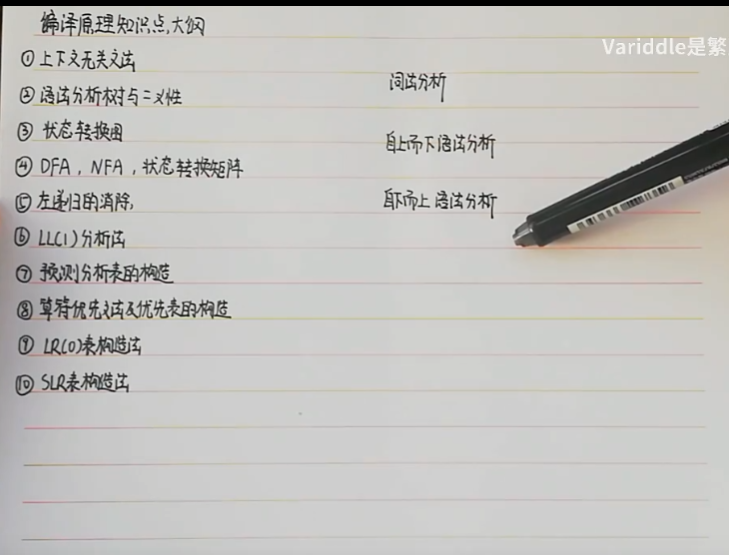 编译原理知识点大纲
Variddle是繁
①上下文无关文法
②语法分析树与二义性
③状态转换图
④DFA，NFA，状态转换矩阵
⑤左递归的消除，
⑥LL(1)分析法
⑦预测分析表的构造
⑧算符优先文法及优先表的构造
⑨LR(0)表构造法
⑩SLR表构造法
词法分析
自上而下语法分析
自下而上语法分析